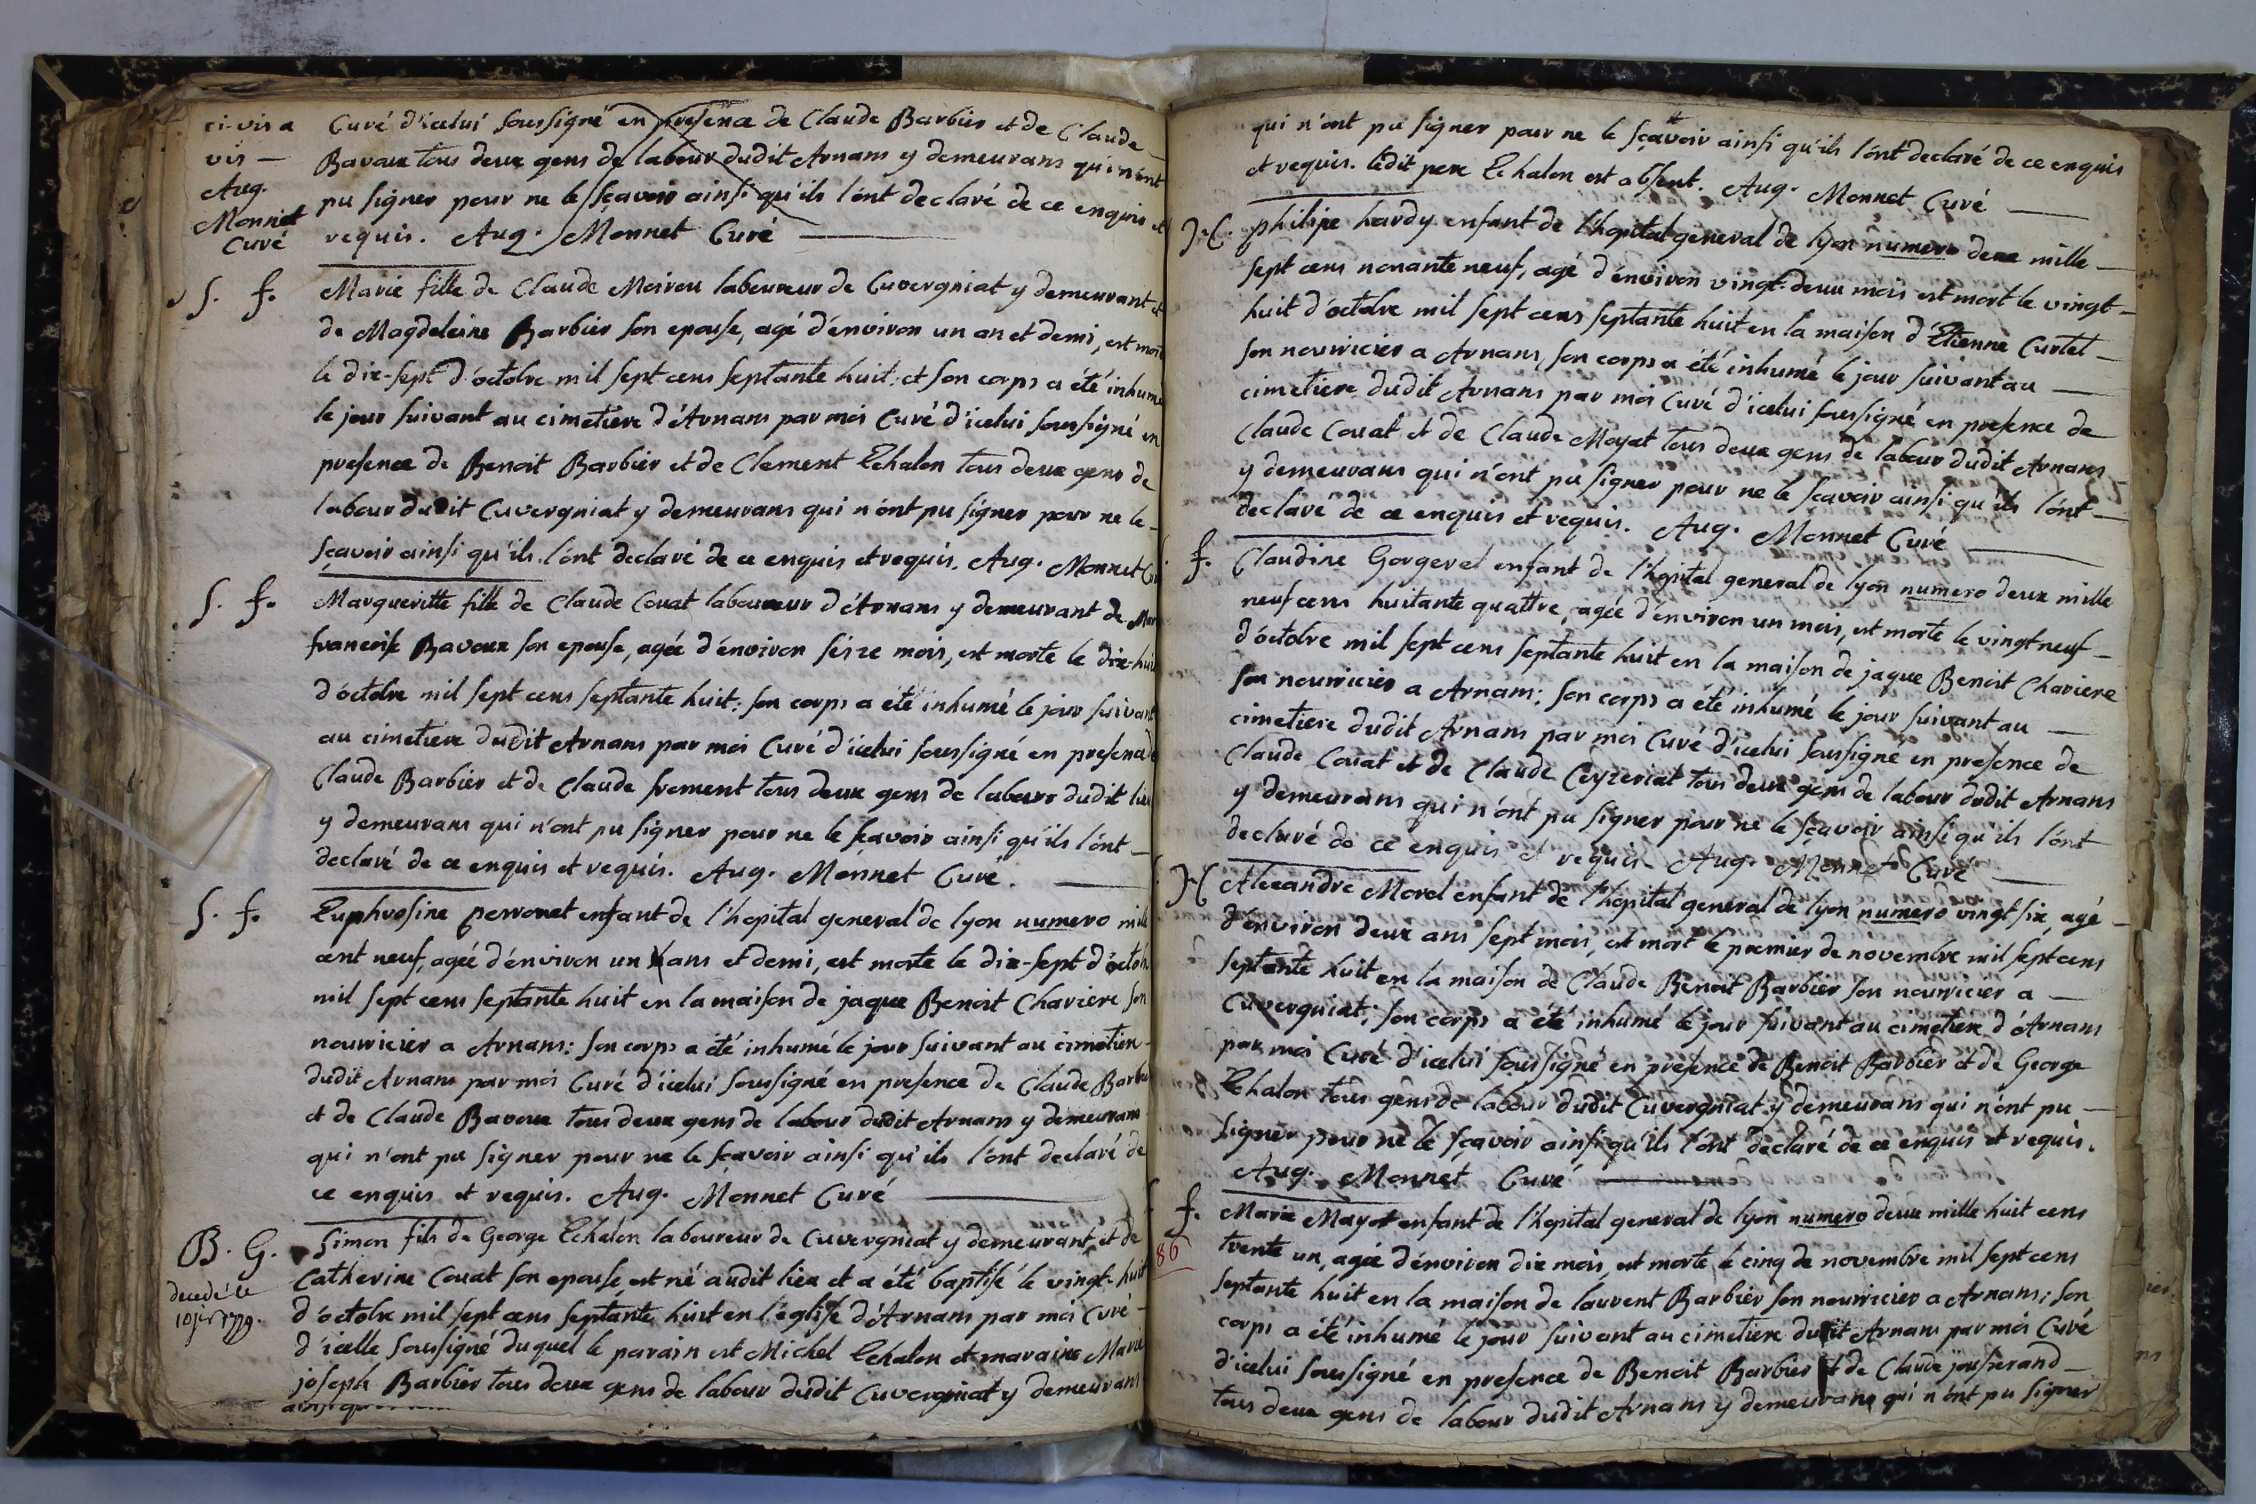 ci-vis a
vis —
Aug.
Monnet
Curé
Curé d'icelui soussigné en presence de Claude Barbier et de Claude —
Bavoux tous deux gens de labour dudit Arnans y demeurans qui n'ont
pu signer pour ne le sçavoir ainsi qu'ils l'ont declaré de ce enquis et
requis. Aug. Monnet Curé —
S. f.
Marie fille de Claude Moirou laboureur de Cuvergniat y demeurant et
de Magdeleine Barbier son epouse, agé d'environ un an et demi, est mort
le dix-sept d'octobre mil sept cens septante huit; et son corps a été inhumé
le jour suivant au cimetiere d'Arnans par moi Curé d'icelui soussigné en
presence de Benoit Barbier et de Clement Echalon tous deux gens de
labour dudit Cuvergniat y demeurans qui n'ont pu signer pour ne le —
sçavoir ainsi qu'ils l'ont declaré de ce enquis et requis. Aug. Monnet
S. f.
Margueritte fille de Claude Couat laboureur d'Arnans y demeurant de
francoise Bavoux son epouse, agée d'environ seize mois, est morte le dix-huit
d'octobre mil sept cens septante huit; son corps a été inhumé le jour suivant
au cimetiere dudit Arnans par moi Curé d'icelui soussigné en presence de
Claude Barbier et de Claude froment tous deux gens de labour dudit lieu
y demeurans qui n'ont pu signer pour ne le scavoir ainsi qu'ils l'ont —
declaré de ce enquis et requis. Aug. Monnet Curé. —
S. f.
Euphrosine perronet enfant de l'hopital general de lyon numero mille
cent neuf, agée d'environ un ans et demi, est morte le dix-sept d'octobre
mil sept cens septante huit en la maison de jaque Benoit Chariere son
nourricier a Arnans: son corps a été inhumé le jour suivant au cimetiere
dudit Arnans par moi Curé d'icelui soussigné en presence de Claude Barbier
et de Claude Bavoux tous deux gens de labour dudit Arnans y demeurans
qui n'ont pu signer pour ne le scavoir ainsi qu'ils l'ont declaré de
ce enquis et requis. Aug. Monnet Curé —
B. G.
decedé le
10 1779.
Simon fils de George Echalon laboureur de Cuvergniat y demeurant et de
Catherine Couat son epouse est né audit lieu et a été baptisé le vingt-huit
d'octobre mil sept cens septante huit en l'eglise d'Arnans par moi Curé —
d'icelle soussigné duquel le parain est Michel Echalon et maraine Marie
joseph Barbier tous deux gens de labour dudit Cuvergniat y demeurans
qui n'ont pu signer pour ne le sçavoir ainsi qu'ils l'ont declaré de ce enquis
et requis. ledit pere Echalon est absent. Aug. Monnet Curé —
philipe hardy enfant de l'hopital general de lyon numero deux mille —
sept cens nonante neuf, agé d'environ vingt-deux mois est mort le vingt-
huit d'octobre mil sept cens septante huit en la maison d'Etienne Curtet —
son nourricier a Arnans, son corps a été inhumé le jour suivant au —
cimetiere dudit Arnans par moi Curé d'icelui soussigné en presence de
Claude Couat et de Claude Mayat tous deux gens de labour dudit Arnans —
y demeurans qui n'ont pu signer pour ne le scavoir ainsi qu'ils l'ont —
declaré de ce enquis et requis. Aug. Monnet Curé —
f.
Claudine Gorgeret enfant de l'hopital general de lyon numero deux mille
neuf cens huitante quattre, agée d'environ un mois, est morte le vingt neuf —
d'octobre mil sept cens septante huit en la maison de jaque Benoit Chariere
son nourricier a Arnans; son corps a été inhumé le jour suivant au —
cimetiere dudit Arnans par moi Curé d'icelui soussigné en presence de
Claude Couat et de Claude Ceyzeriat tous deux gens de labour dudit Arnans
y demeurans qui n'ont pu signer pour ne le sçavoir ainsi qu'ils l'ont
declaré de ce enquis et requis. Aug. Monnet Curé —
Alexandre Morel enfant de l'hopital general de lyon numero vingt six, agé —
d'environ deux ans sept mois, est mort le premier de novembre mil sept cens
septante huit en la maison de Claude Benoit Barbier son nourricier a —
Cuvergniat; son corps a été inhumé le jour suivant au cimetiere d'Arnans
par moi Curé d'icelui soussigné en presence de Benoit Barbier et de George
Echalon tous gens de labour dudit Cuvergniat y demeurans qui n'ont pu —
signer pour ne le sçavoir ainsi qu'ils l'ont declaré de ce enquis et requis.
Aug. Monnet Curé —
f.
86
Marie Mayot enfant de l'hopital general de lyon numero deux mille huit cens
trente un, agée d'environ dix mois, est morte le cinq de novembre mil sept cens
septante huit en la maison de laurent Barbier son nourricier a Arnans; son
corps a été inhumé le jour suivant au cimetiere dudit Arnans par moi Curé
d'icelui soussigné en presence de Benoit Barbier et de Claude jousserand —
tous deux gens de labour dudit Arnans y demeurans qui n'ont pu signer